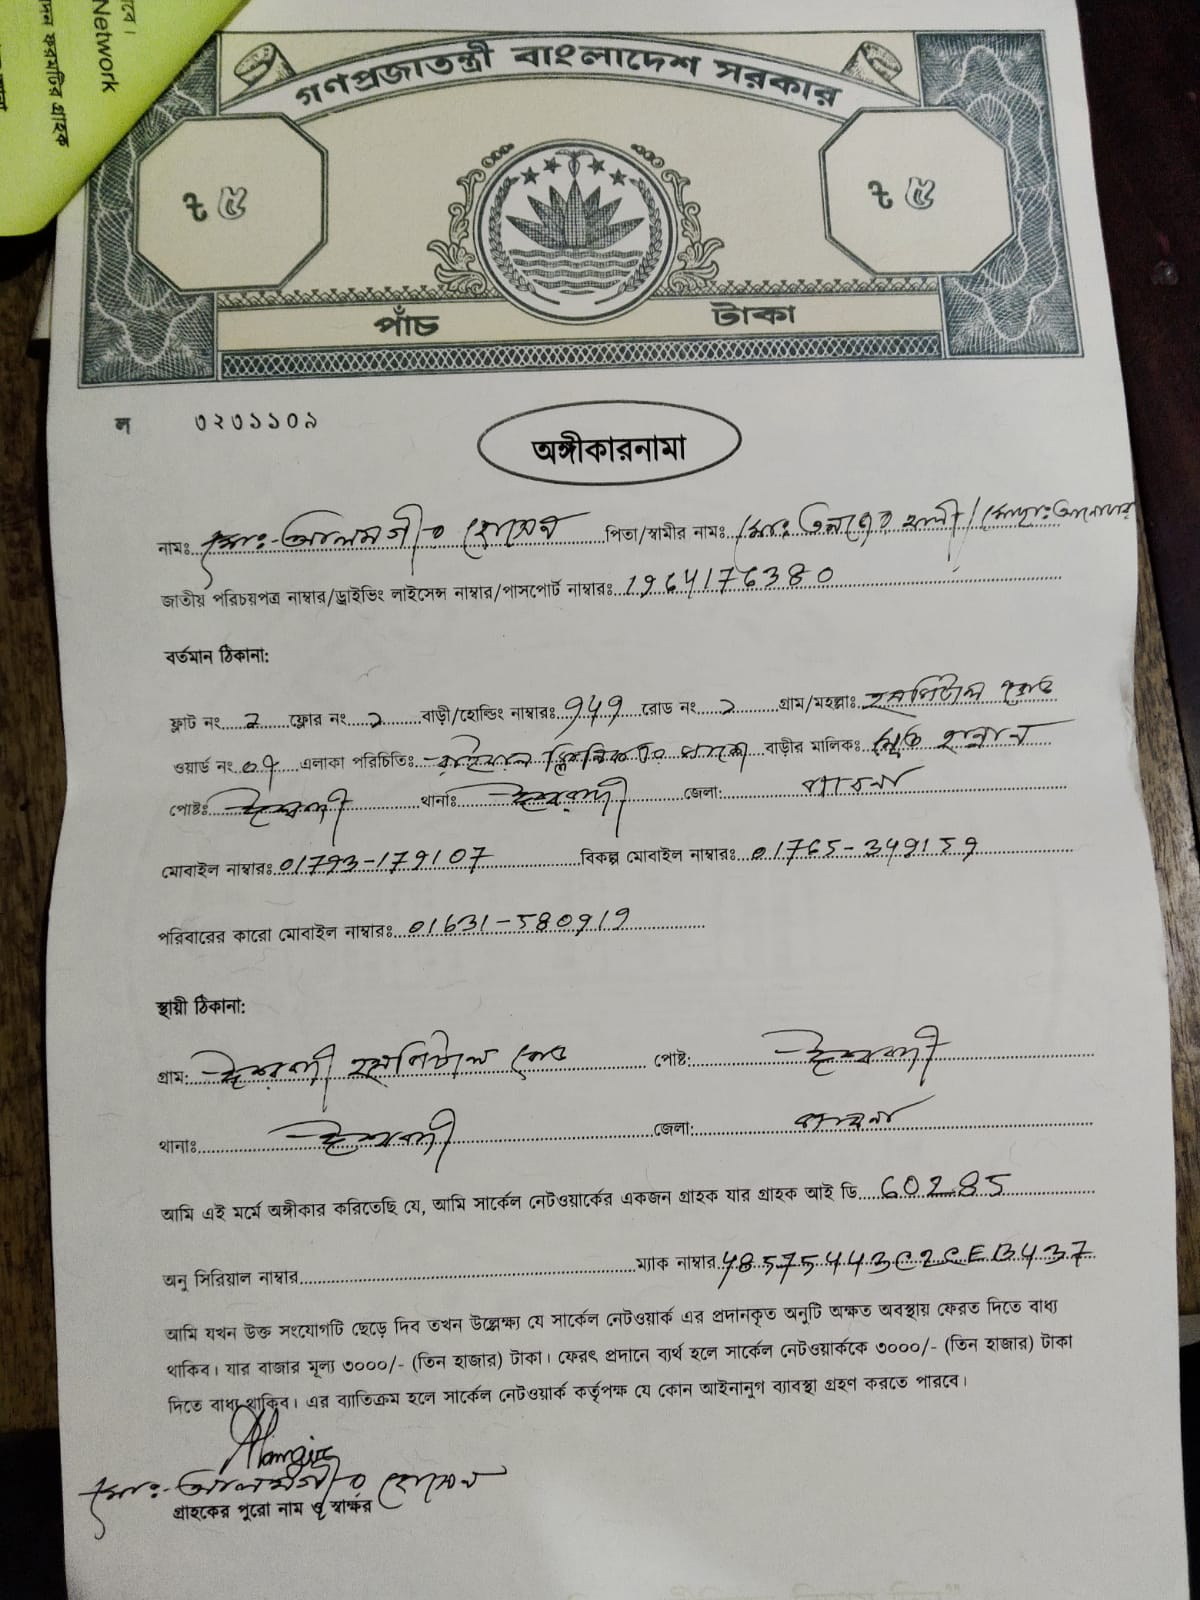 বে।
Network
দেন করমটির গ্রাহক
গণপ্রজাতন্ত্রী বাংলাদেশ সরকার
৳ ৫
৳ ৫
পাঁচ টাকা
ল ৩২৩১১০৯
অঙ্গীকারনামা
নামঃ মোঃ আলমগীর হোসেন পিতা/স্বামীর নামঃ মোঃ
জাতীয় পরিচয়পত্র নাম্বার/ড্রাইভিং লাইসেন্স নাম্বার/পাসপোর্ট নাম্বারঃ 1964176380
বর্তমান ঠিকানা:
ফ্লাট নং ফ্লোর নং বাড়ী/হোল্ডিং নাম্বারঃ ৭৪৭ রোড নং গ্রাম/মহল্লাঃ হসপিটাল রোড
ওয়ার্ড নং ০৭ এলাকা পরিচিতিঃ বাড়ীর মালিকঃ মৃত হান্নান
পোষ্টঃ ঈশ্বরদী থানাঃ ঈশ্বরদী জেলা: পাবনা
মোবাইল নাম্বারঃ 01793-179107 বিকল্প মোবাইল নাম্বারঃ 01765-349159
পরিবারের কারো মোবাইল নাম্বারঃ 01631-580919
স্থায়ী ঠিকানা:
গ্রাম: ঈশ্বরদী হসপিটাল রোড পোষ্ট: ঈশ্বরদী
থানাঃ ঈশ্বরদী জেলা: পাবনা
আমি এই মর্মে অঙ্গীকার করিতেছি যে, আমি সার্কেল নেটওয়ার্কের একজন গ্রাহক যার গ্রাহক আই ডি 60285
অনু সিরিয়াল নাম্বার ম্যাক নাম্বার 48575443C2CEB437
আমি যখন উক্ত সংযোগটি ছেড়ে দিব তখন উল্লেক্ষ্য যে সার্কেল নেটওয়ার্ক এর প্রদানকৃত অনুটি অক্ষত অবস্থায় ফেরত দিতে বাধ্য
থাকিব। যার বাজার মূল্য ৩০০০/- (তিন হাজার) টাকা। ফেরৎ প্রদানে ব্যর্থ হলে সার্কেল নেটওয়ার্ককে ৩০০০/- (তিন হাজার) টাকা
দিতে বাধ্য থাকিব। এর ব্যাতিক্রম হলে সার্কেল নেটওয়ার্ক কর্তৃপক্ষ যে কোন আইনানুগ ব্যাবস্থা গ্রহণ করতে পারবে।
মোঃ আলমগীর হোসেন
গ্রাহকের পুরো নাম ও স্বাক্ষর